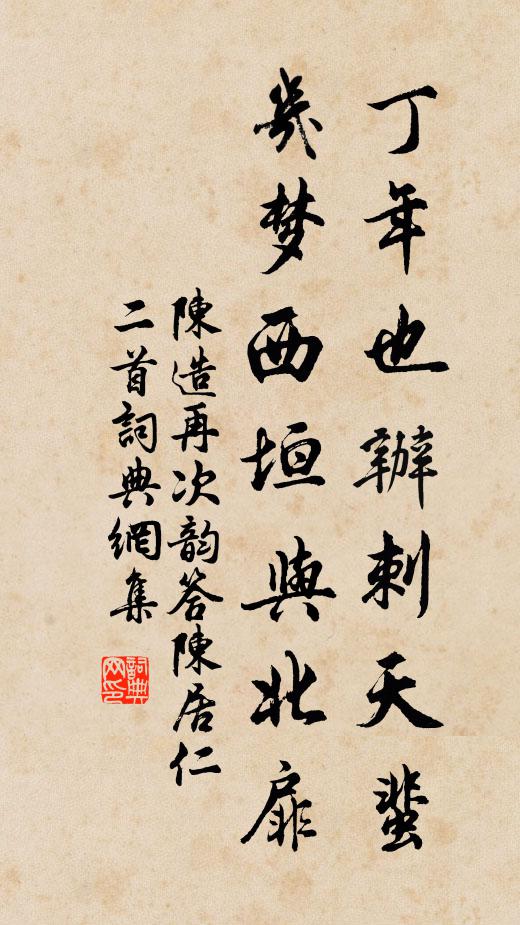 丁年也辦刺天蜚
幾梦西垣與北扉
陳造再次韵答陳居仁
二首詞典網集
詞典网印